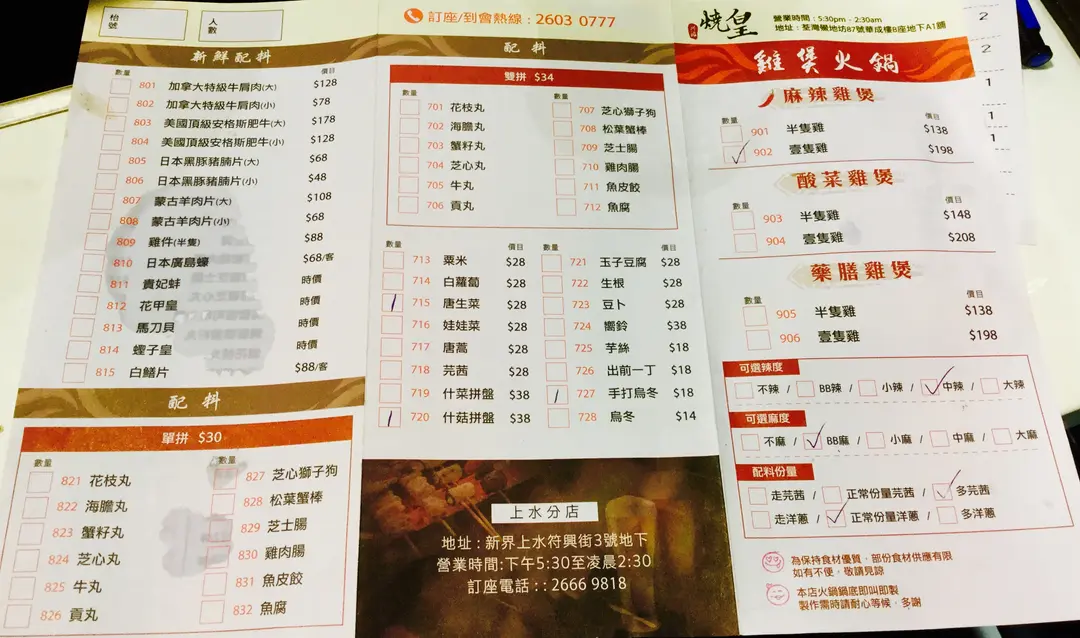 枱號
人數
新鮮配料
數量
價目
801 加拿大特級牛肩肉(大) $128
802 加拿大特級牛肩肉(小) $78
803 美國頂級安格斯肥牛(大) $178
804 美國頂級安格斯肥牛(小) $128
805 日本黑豚豬腩片(大) $68
806 日本黑豚豬腩片(小) $48
807 蒙古羊肉片(大) $108
808 蒙古羊肉片(小) $68
809 雞件(半隻) $88
810 日本廣島蠔 $68/客
811 貴妃蚌 時價
812 花甲皇 時價
813 馬刀貝 時價
814 蟶子皇 時價
815 白鱔片 $88/客
配料
單拼 $30
數量
821 花枝丸
822 海膽丸
823 蟹籽丸
824 芝心丸
825 牛丸
826 貢丸
數量
827 芝心獅子狗
828 松葉蟹棒
829 芝士腸
830 雞肉腸
831 魚皮餃
832 魚腐
訂座/到會熱線 : 2603 0777
配料
雙拼 $34
數量
701 花枝丸
702 海膽丸
703 蟹籽丸
704 芝心丸
705 牛丸
706 貢丸
數量
707 芝心獅子狗
708 松葉蟹棒
709 芝士腸
710 雞肉腸
711 魚皮餃
712 魚腐
數量 價目
713 粟米 $28
714 白蘿蔔 $28
715 唐生菜 $28
716 娃娃菜 $28
717 唐蒿 $28
718 芫茜 $28
719 什菜拼盤 $38
720 什菇拼盤 $38
數量 價目
721 玉子豆腐 $28
722 生根 $28
723 豆卜 $28
724 嚮鈴 $38
725 芋絲 $18
726 出前一丁 $18
727 手打烏冬 $18
728 烏冬 $14
上水分店
地址 : 新界上水符興街3號地下
營業時間:下午5:30至凌晨2:30
訂座電話 : : 2666 9818
燒皇
營業時間 : 5:30pm - 2:30am
地址 : 荃灣曬地坊87號華成樓B座地下A1鋪
雞煲火鍋
麻辣雞煲
數量 價目
901 半隻雞 $138
902 壹隻雞 $198
酸菜雞煲
數量 價目
903 半隻雞 $148
904 壹隻雞 $208
藥膳雞煲
數量 價目
905 半隻雞 $138
906 壹隻雞 $198
可選辣度
不辣 / BB辣 / 小辣 / 中辣 / 大辣
可選麻度
不麻 / BB麻 / 小麻 / 中麻 / 大麻
配料份量
走芫茜 / 正常份量芫茜 / 多芫茜
走洋蔥 / 正常份量洋蔥 / 多洋蔥
為保持食材優質，部份食材供應有限
如有不便，敬請見諒
本店火鍋鍋底即叫即製
製作需時請耐心等候，多謝
2
2
1
1
1